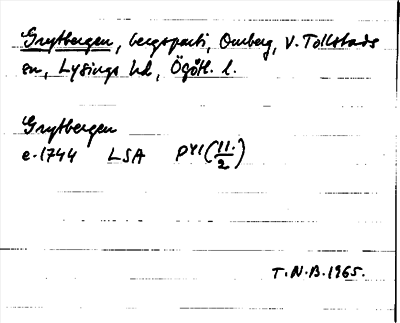 Grytbergen, bergsparti, Omberg, V. Tollstads
sn, Lysings hd, Ögötl. l.
Grytbergen
e. 1744 LSA P41 (11/2)
T.N.B. 1965.